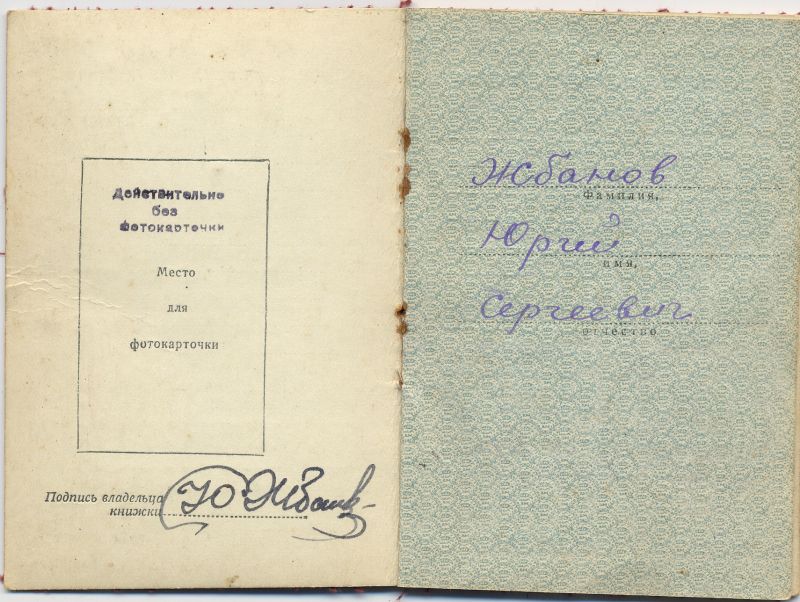 Действительно
без
фотокарточки
Место
для
фотокарточки
Подпись владельца
книжки
Ю Жбанов
Жбанов
Фамилия,
Юрий
имя,
Сергеевич
отчество